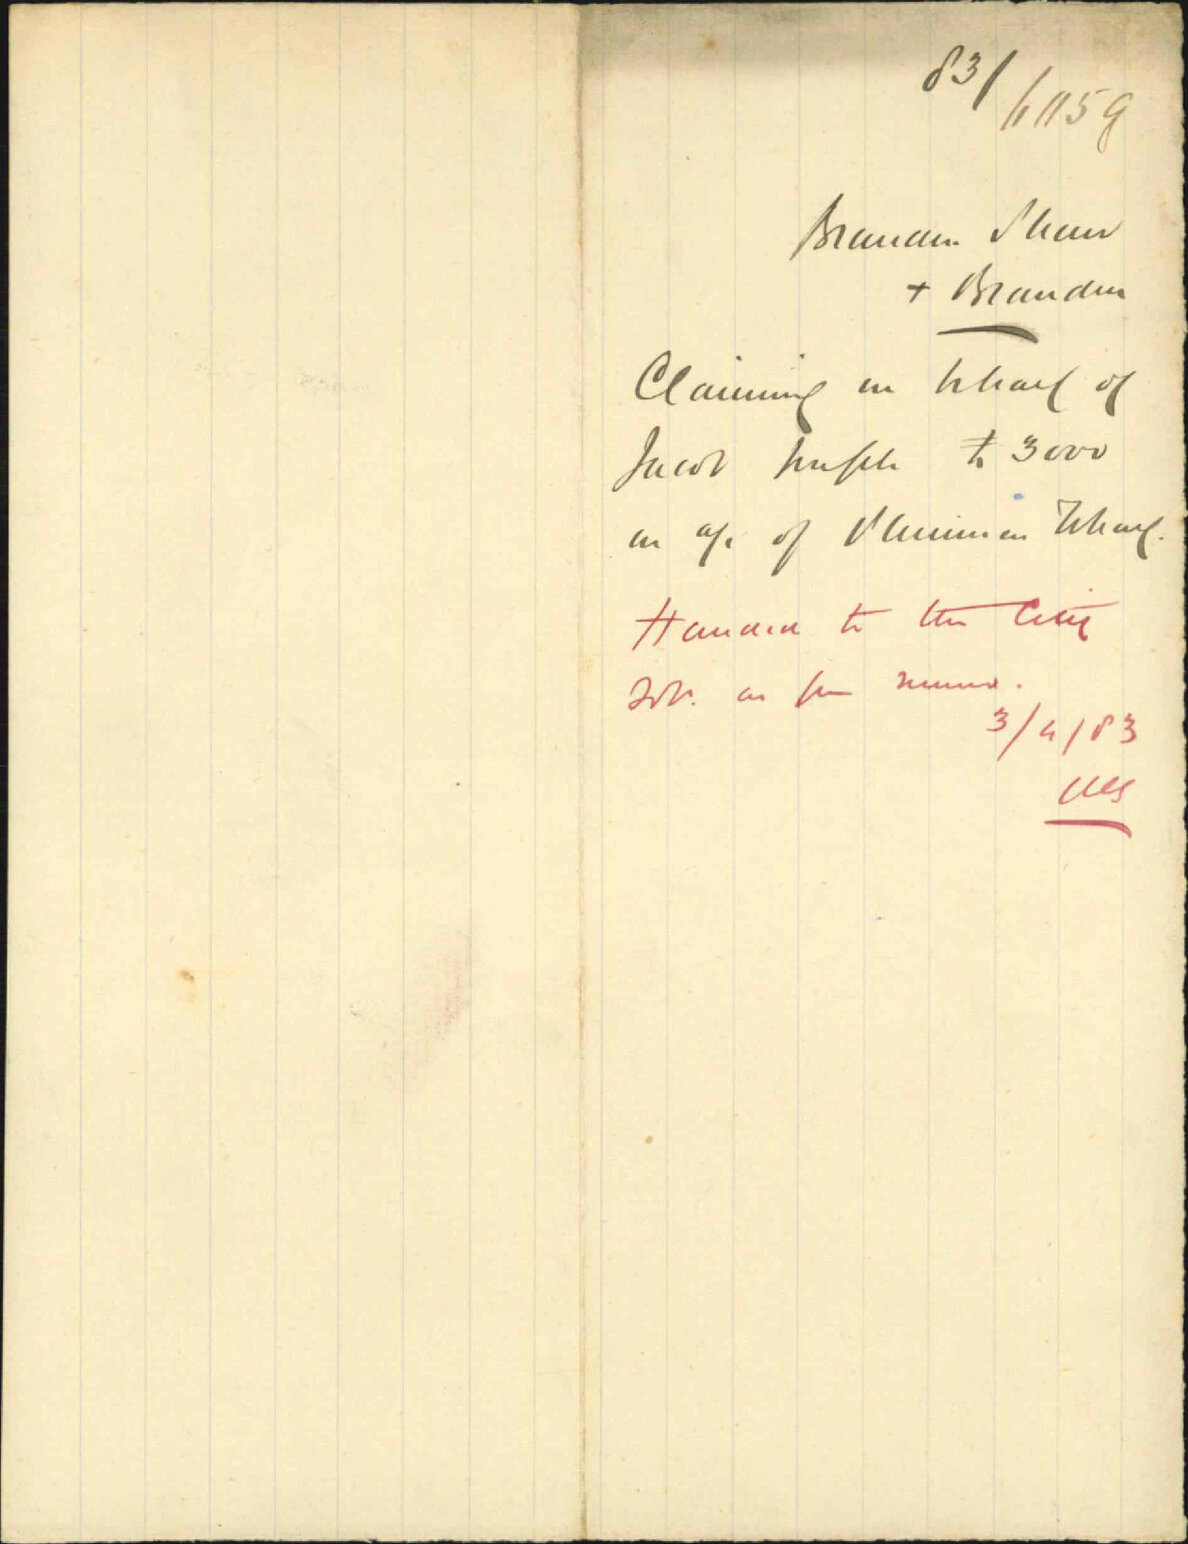 83/
1159
Brandon Shaw
+ Brandon
Claiming on behalf of
Jacob Joseph £3000
on a/c of Phoenix Wharf.
Handed to the City
Sol. as per memo.
3/4/83